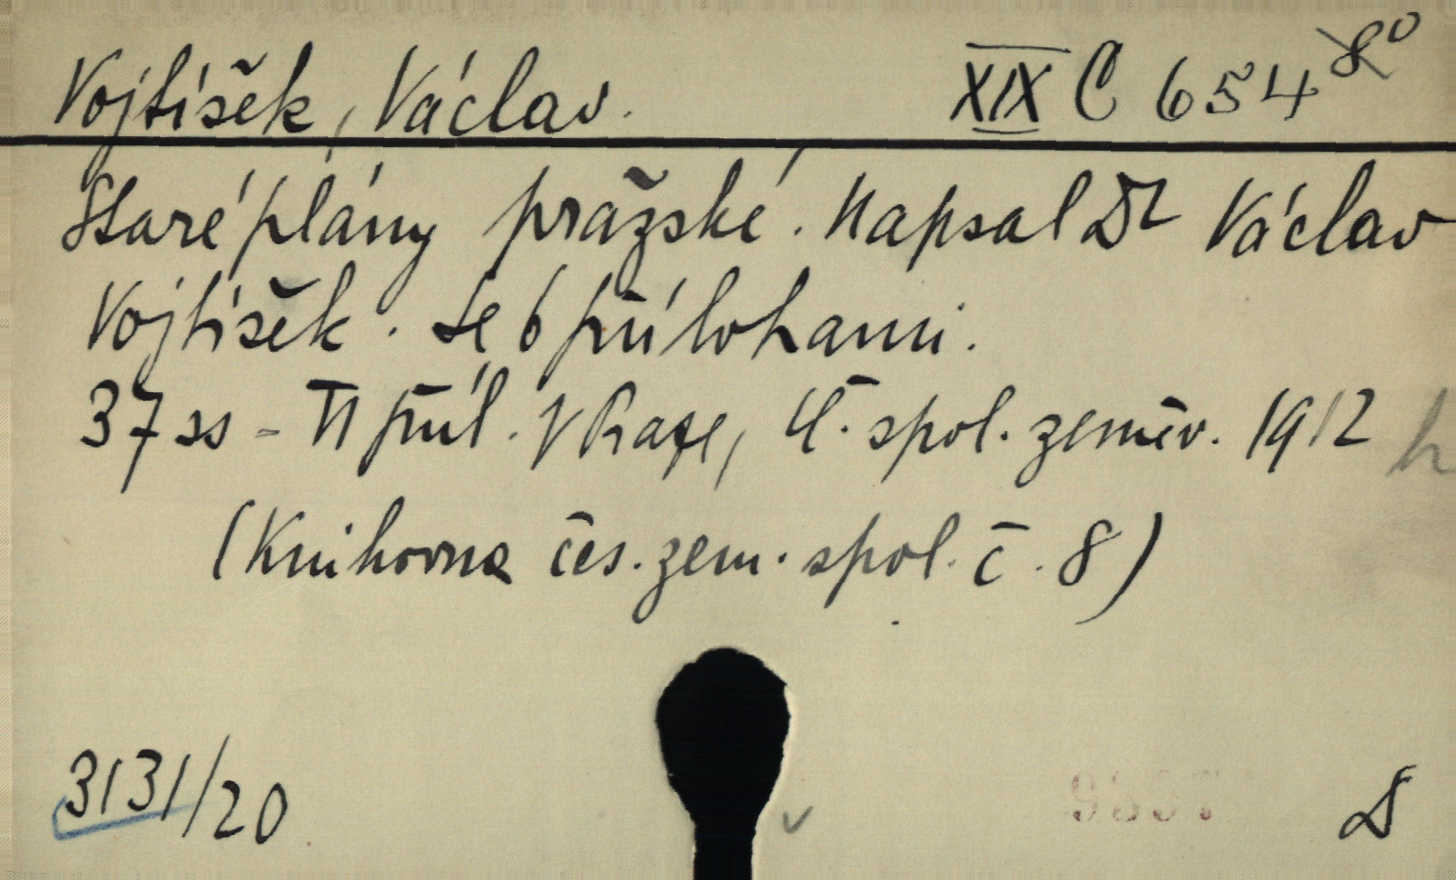 Vojtíšek, Václav. XIX C 654 8°
Staré plány pražské. Napsal Dr Václav
Vojtíšek. Se 6 přílohami.
37 ss - VI příl. V Praze, Č. spol. zeměv. 1912
(Knihovna čes. zem. spol. č. 8)
3131/20